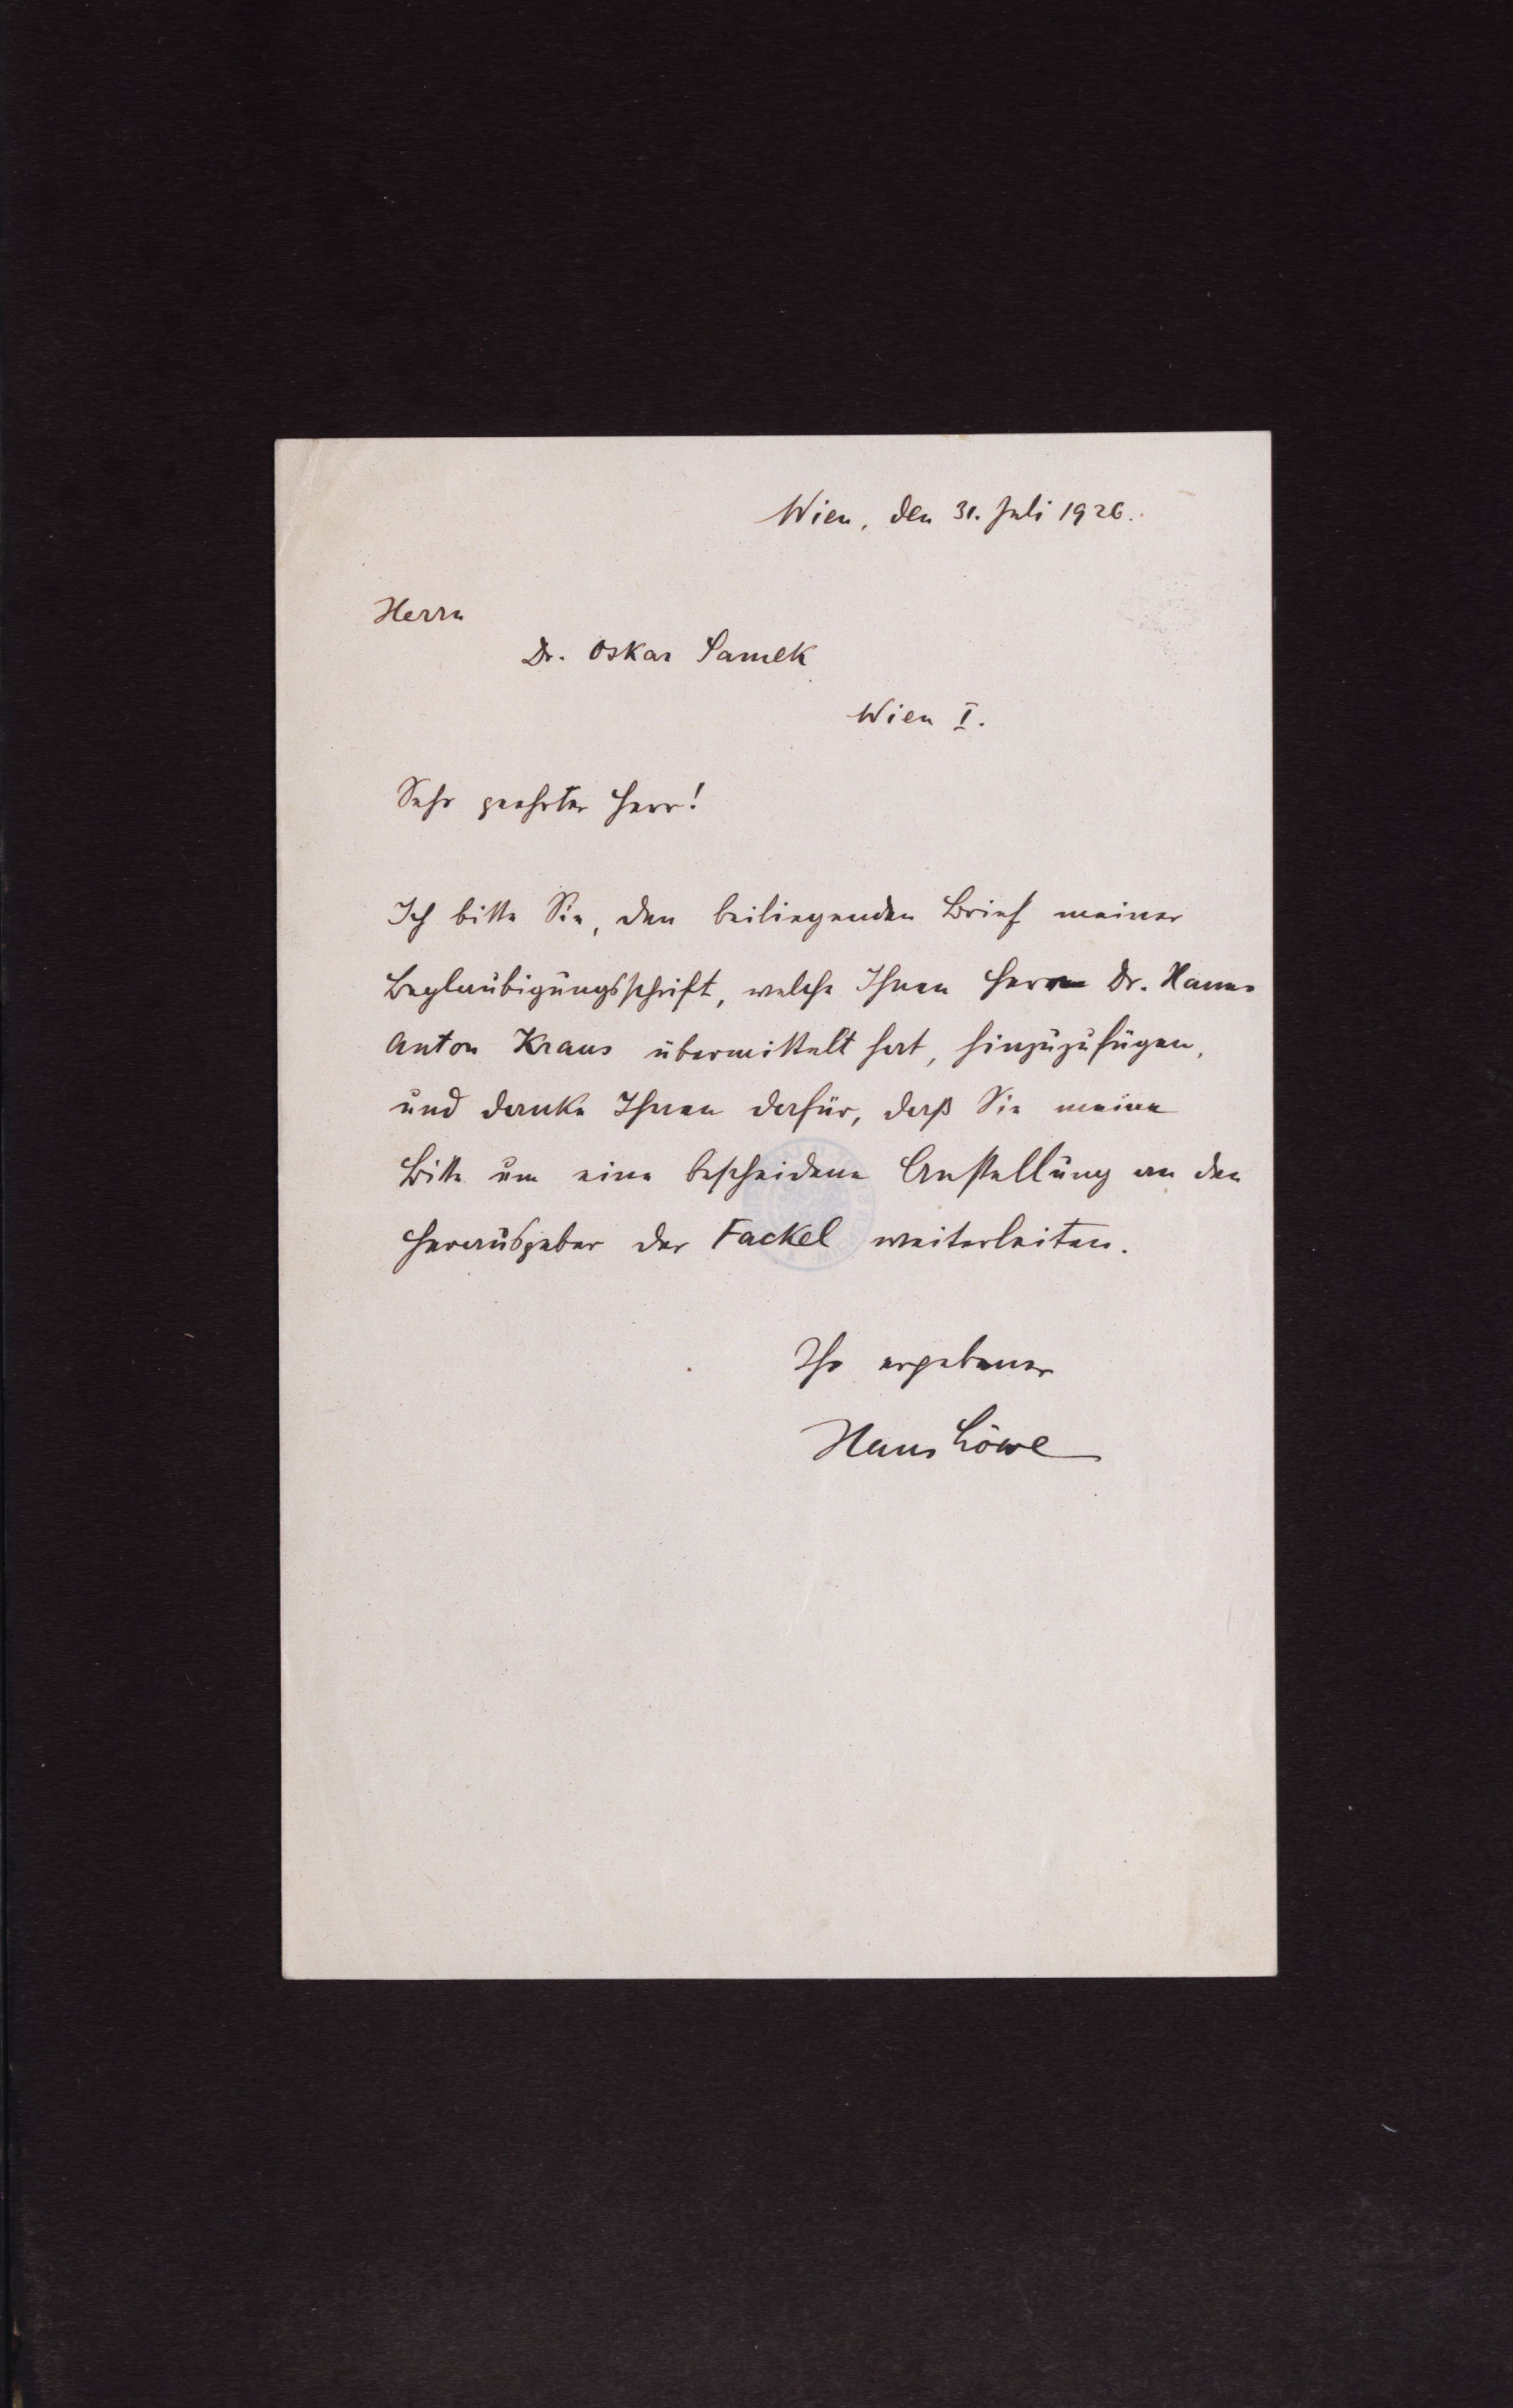 Wien, den 31. Juli 1926.
Herrn
Dr. Oskar Samek
Wien I.
Sehr geehrter Herr!
Ich bitte Sie, den beiliegenden Brief meiner
Beglaubigungsschrift, welche Ihnen Herr Dr. Hanns
Anton Kraus übermittelt hat, hinzuzufügen,
und danke Ihnen dafür, daß Sie meine
Bitte um eine bescheidene Anstellung an den
Herausgeber der Fackel weiterleiten.
Ihr ergebener
Hans Löwe